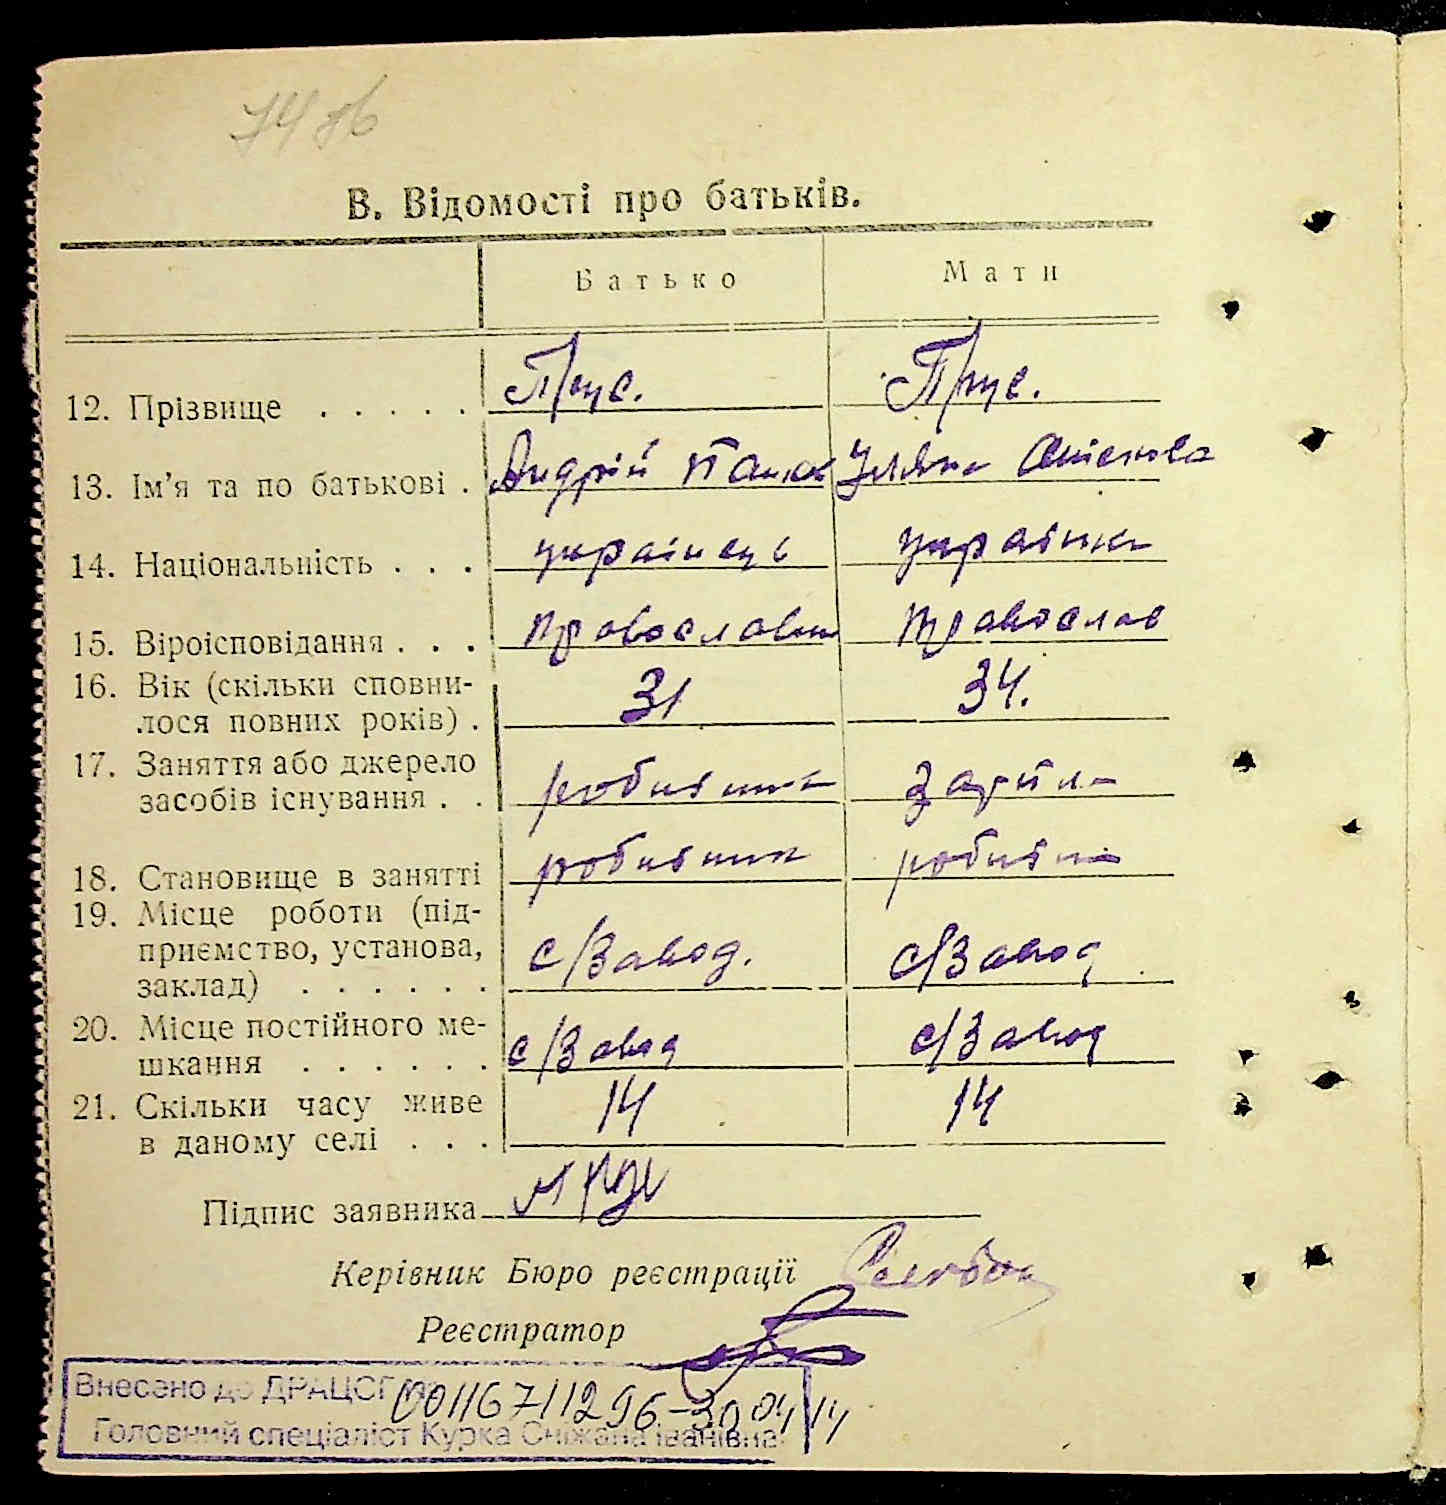 В. Відомості про батьків.
Батько Мати
12. Прізвище . . . . . Прус. Прус.
13. Ім'я та по батькові . Андрій Уляна
14. Національність . . . українець українка
15. Віроісповідання . . . Православн Православ
16. Вік (скільки сповни- 31 34.
лося повних років) .
17. Заняття або джерело
засобів існування . .
18. Становище в занятті
19. Місце роботи (під-
приємство, установа, с/Завод. с/Завод
заклад) . . . . . .
20. Місце постійного ме- с/Завод с/Завод
шкання . . . . . .
21. Скільки часу живе 14 14
в даному селі . . .
Підпис заявника
Керівник Бюро реєстрації
Реєстратор
Внесено до ДРАЦСГ 00116711296-30.04.14
Головний спеціаліст Курка Сніжана Іванівна